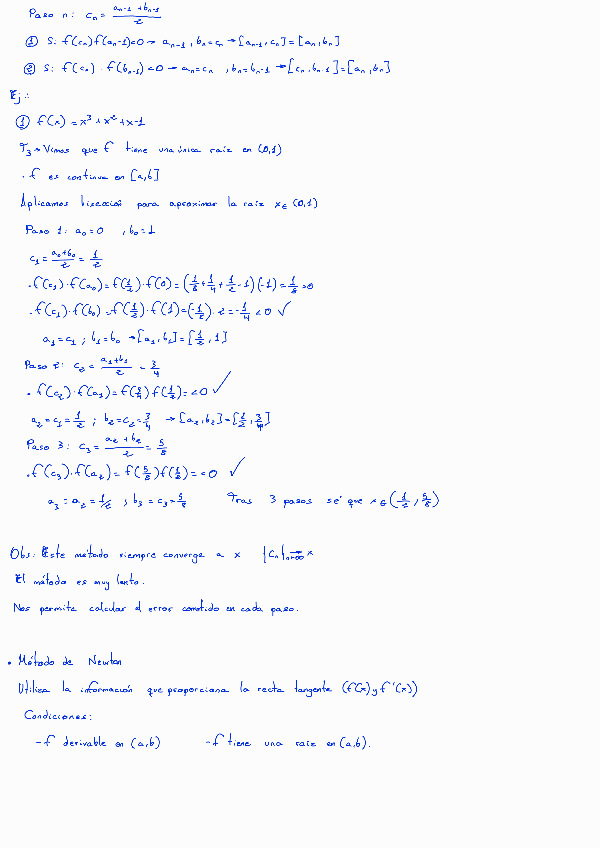 Paso n: cₙ = (aₙ₋₁ + bₙ₋₁)/2
① Si f(cₙ)f(aₙ₋₁)<0 → aₙ₋₁, bₙ=cₙ → [aₙ₋₁, cₙ] = [aₙ, bₙ]
② Si f(cₙ)·f(bₙ₋₁)<0 → aₙ=cₙ, bₙ=bₙ₋₁ → [cₙ, bₙ₋₁] = [aₙ, bₙ]
Ej:
① f(x) = x³+x²+x-1
T₃ → Vimos que f tiene una única raíz en (0,1)
· f es continua en [a,b]
Aplicamos bisección para aproximar la raíz x∈(0,1)
Paso 1: a₀=0, b₀=1
c₁ = (a₀+b₀)/2 = 1/2
· f(c₁)·f(a₀) = f(1/2)·f(0) = (1/8+1/4+1/2-1)(-1) = 1/8 >0
· f(c₁)·f(b₀) = f(1/2)·f(1) = (-1/8)·2 = -1/4 <0 ✓
a₁=c₁; b₁=b₀ → [a₁, b₁] = [1/2, 1]
Paso 2: c₂ = (a₁+b₁)/2 = 3/4
· f(c₂)·f(a₁) = f(3/4) f(1/2) = <0 ✓
a₂=c₁=1/2; b₂=c₂=3/4 → [a₂, b₂] = [1/2, 3/4]
Paso 3: c₃ = (a₂+b₂)/2 = 5/8
· f(c₃)·f(a₂) = f(5/8) f(1/2) = <0 ✓
a₃=a₂=1/2; b₃=c₃=5/8 Tras 3 pasos sé que x∈(1/2, 5/8)
Obs: Este método siempre converge a x {cₙ} n→∞ → x
El método es muy lento.
Nos permite calcular el error cometido en cada paso.
· Método de Newton
Utiliza la información que proporciona la recta tangente (f(x) y f'(x))
Condiciones:
- f derivable en (a,b) - f tiene una raíz en (a,b).